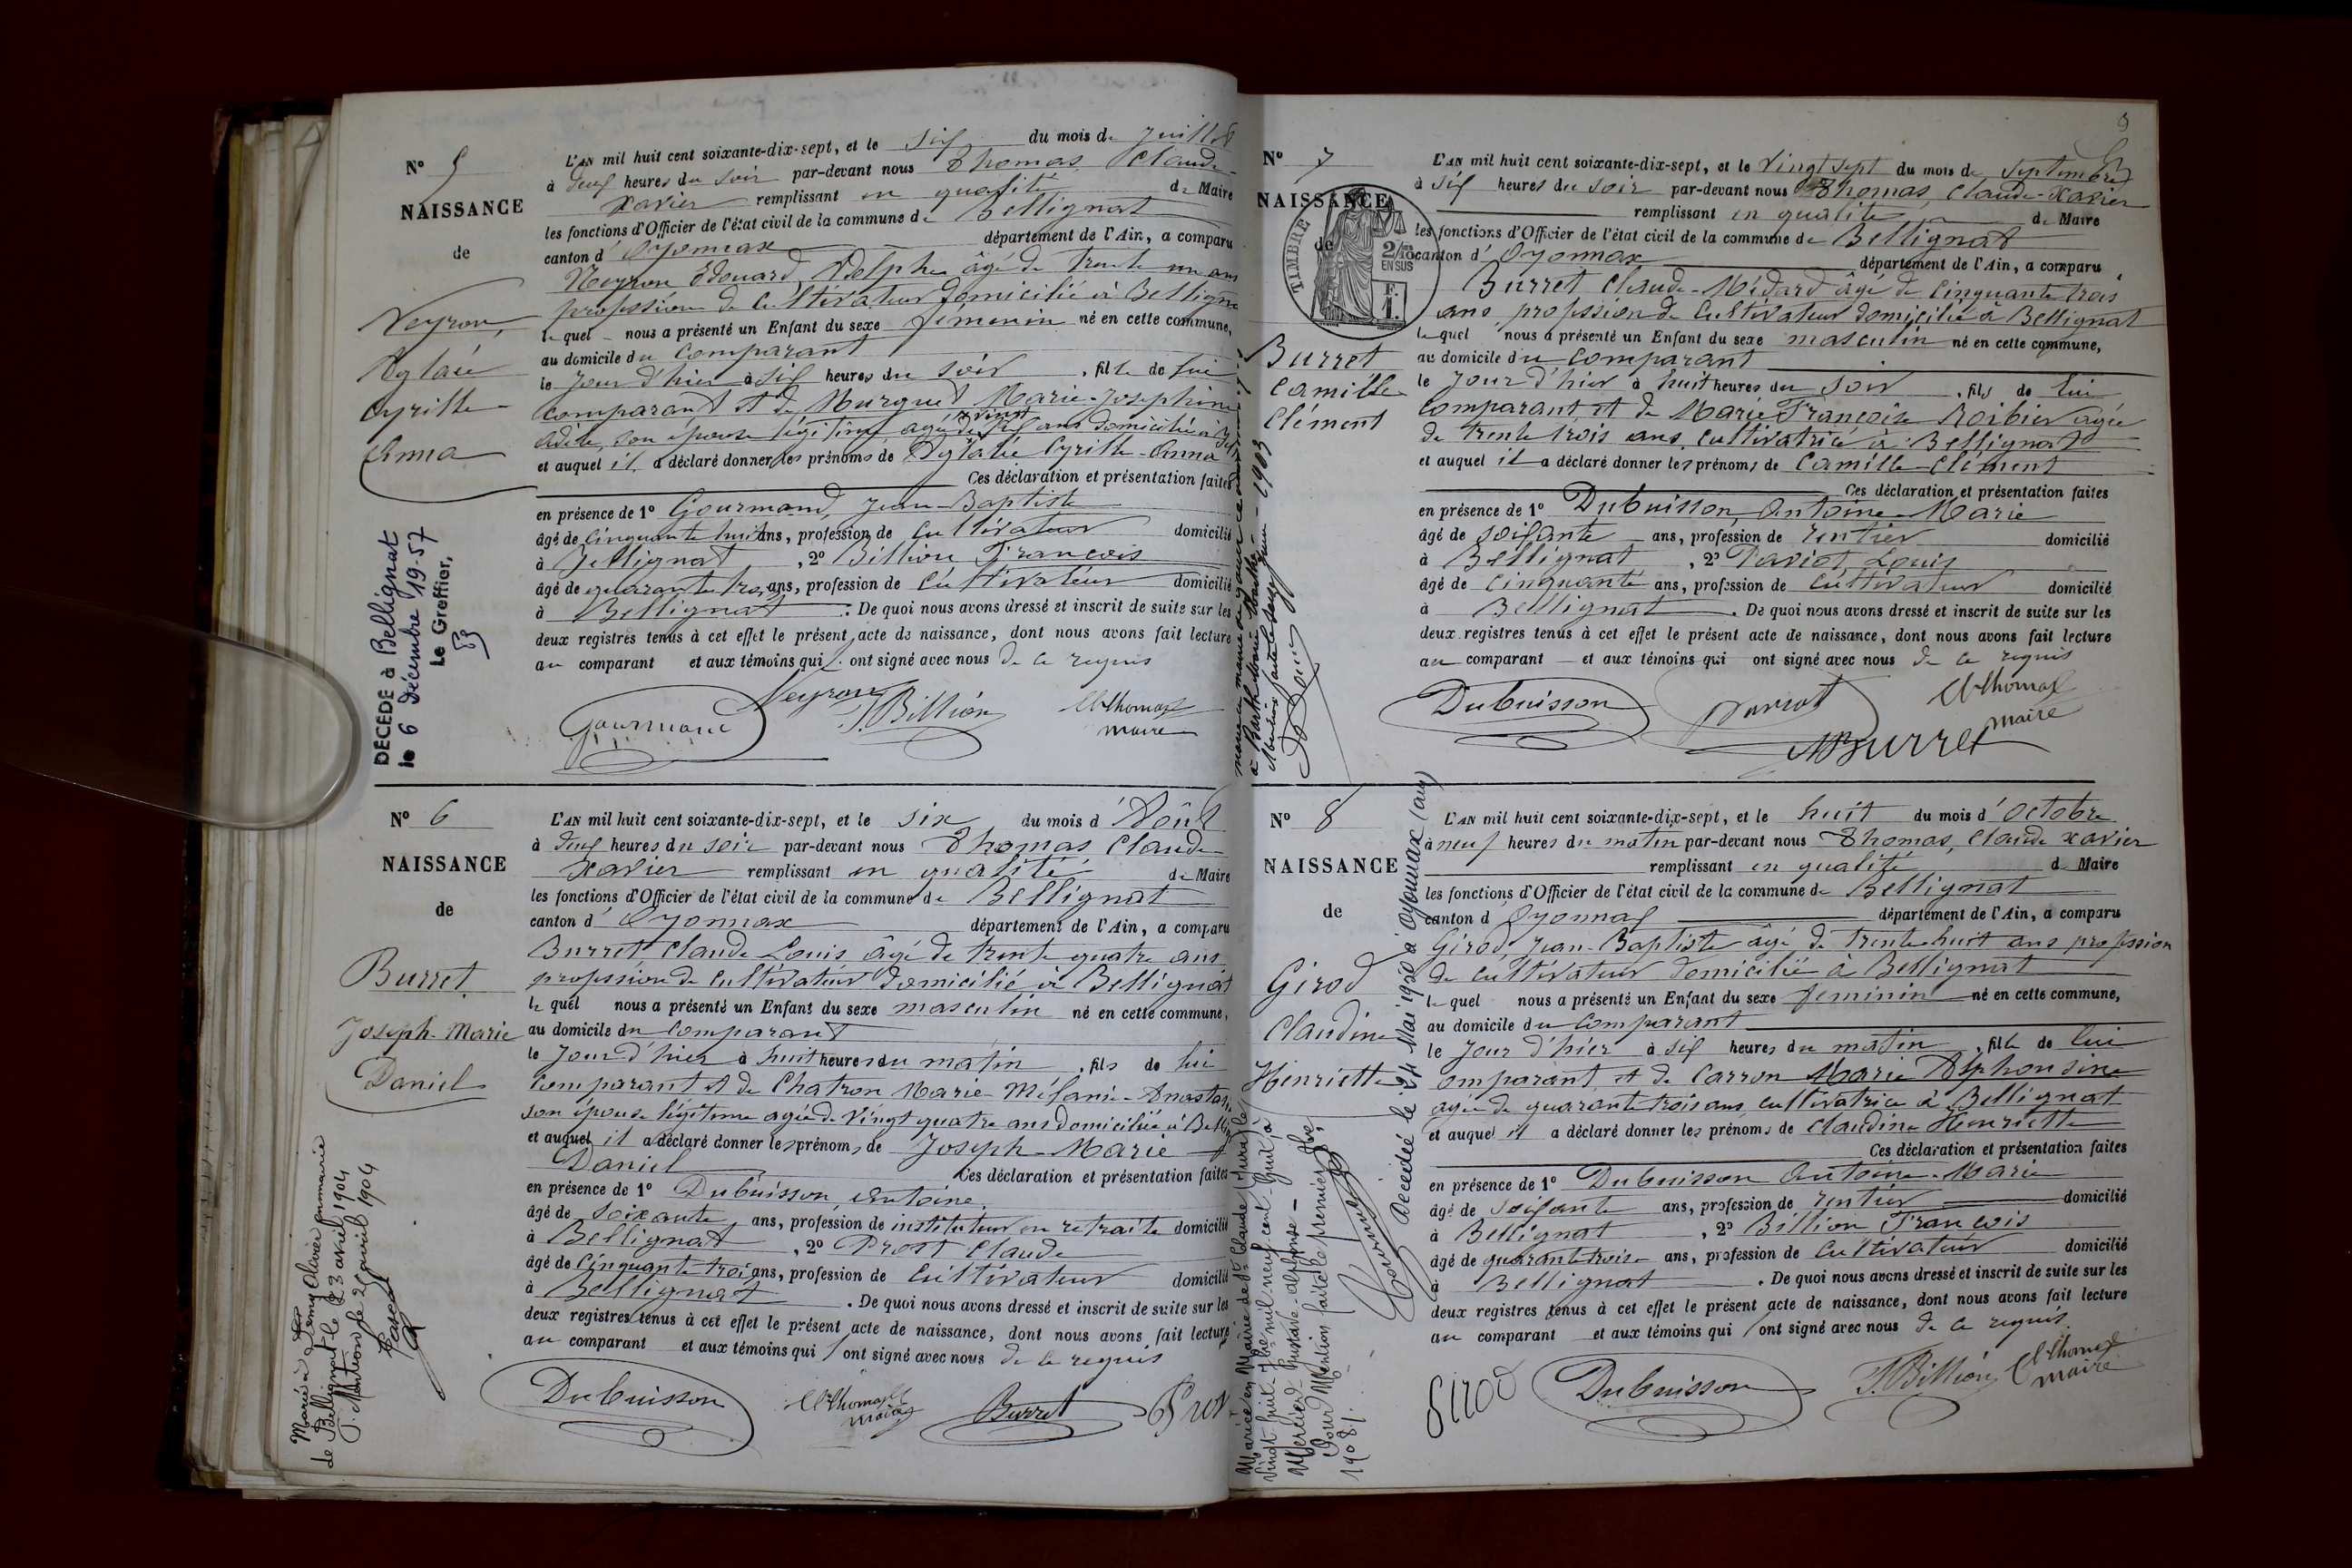 N° 5
NAISSANCE
de
Neyron,
Aglaé
Cyrille
Anna
DÉCÉDÉ à Bellignat
le 6 décembre 19-57
Le Greffier,
L'AN mil huit cent soixante-dix-sept, et le six du mois de Juillet
à deux heures du soir par-devant nous Thomas, Claude-
Xavier remplissant en qualité de Maire
les fonctions d'Officier de l'état civil de la commune de Bellignat
canton d'Oyonnax département de l'Ain, a comparu
Neyron Edouard, Adelphe âgé de trente un ans
profession de cultivateur domicilié à Bellignat
lequel nous a présenté un Enfant du sexe féminin né en cette commune,
au domicile du comparant
le jour d'hier à six heures du soir, fille de lui
comparant et de Murguet Marie-Joséphine
Adèle, son épouse légitime âgée de vingt six ans domiciliée à
et auquel il a déclaré donner les prénoms de Aglaée Cyrille-Anna
Ces déclaration et présentation faites
en présence de 1° Gourmand, Jean-Baptiste
âgé de cinquante huit ans, profession de cultivateur domicilié
à Bellignat, 2° Billion François
âgé de quarante trois ans, profession de cultivateur domicilié
à Bellignat. De quoi nous avons dressé et inscrit de suite sur les
deux registres tenus à cet effet le présent acte de naissance, dont nous avons fait lecture
au comparant et aux témoins qui ont signé avec nous de ce requis
Neyron
Gourmand
F. Billion
Cl Thomas
maire
N° 6
NAISSANCE
de
Burret
Joseph-Marie
Daniel
Marié à
de Bellignat le 23 avril 1904
P. Mention le 25 avril 1904
L'AN mil huit cent soixante-dix-sept, et le six du mois d'Août
à deux heures du soir par-devant nous Thomas Claude
Xavier remplissant en qualité de Maire
les fonctions d'Officier de l'état civil de la commune de Bellignat
canton d'Oyonnax département de l'Ain, a comparu
Burret Claude Louis âgé de trente quatre ans
profession de cultivateur domicilié à Bellignat
lequel nous a présenté un Enfant du sexe masculin né en cette commune,
au domicile du comparant
le jour d'hier à huit heures du matin, fils de lui
comparant et de Chatron Marie-Mélanie-
son épouse légitime agée de vingt quatre ans domiciliée à
et auquel il a déclaré donner les prénoms de Joseph-Marie
Daniel Ces déclaration et présentation faites
en présence de 1° Dubuisson, Antoine
âgé de soixante ans, profession de instituteur en retraite domicilié
à Bellignat, 2° Prost Claude
âgé de cinquante trois ans, profession de cultivateur domicilié
à Bellignat. De quoi nous avons dressé et inscrit de suite sur les
deux registres tenus à cet effet le présent acte de naissance, dont nous avons fait lecture
au comparant et aux témoins qui ont signé avec nous de ce requis
Dubuisson
Cl Thomas
maire
Burret
N° 7
NAISSANCE
de
TIMBRE
2/10 EN SUS
F.
1.
Burret
Camille
Clément
1903
L'AN mil huit cent soixante-dix-sept, et le vingt sept du mois de septembre
à six heures du soir par-devant nous Thomas, Claude-Xavier
remplissant en qualité de Maire
les fonctions d'Officier de l'état civil de la commune de Bellignat
canton d'Oyonnax département de l'Ain, a comparu
Burret Claude-Médard âgé de cinquante trois
ans, profession de cultivateur domicilié à Bellignat
lequel nous a présenté un Enfant du sexe masculin né en cette commune,
au domicile du comparant
le jour d'hier à huit heures du soir, fils de lui
comparant et de Marie Françoise Roibier agée
de trente trois ans, cultivatrice à Bellignat
et auquel il a déclaré donner les prénoms de Camille-Clément
Ces déclaration et présentation faites
en présence de 1° Dubuisson, Antoine-Marie
âgé de soixante ans, profession de rentier domicilié
à Bellignat, 2° Daviot, Louis
âgé de cinquante ans, profession de cultivateur domicilié
à Bellignat. De quoi nous avons dressé et inscrit de suite sur les
deux registres tenus à cet effet le présent acte de naissance, dont nous avons fait lecture
au comparant et aux témoins qui ont signé avec nous de ce requis
Dubuisson
Daviot
Cl Thomas
maire
Burret
N° 8
NAISSANCE
de
Girod
Claudine
Henriette
Mariée en Mairie de St Claude (Jura) le
vingt huit 7bre mil neuf cent huit à
Mercier Gustave-Alphonse -
Pour Mention faite le premier 8bre
1908.
Décédée le 24 Mai 1950 à Oyonnax (Ain)
L'AN mil huit cent soixante-dix-sept, et le huit du mois d'Octobre
à neuf heures du matin par-devant nous Thomas, Claude Xavier
remplissant en qualité de Maire
les fonctions d'Officier de l'état civil de la commune de Bellignat
canton d'Oyonnax département de l'Ain, a comparu
Girod Jean-Baptiste âgé de trente huit ans profession
de cultivateur domicilié à Bellignat
lequel nous a présenté un Enfant du sexe féminin né en cette commune,
au domicile du comparant
le jour d'hier à six heures du matin, fille de lui
comparant et de Carron Marie Alphonsine
agée de quarante trois ans cultivatrice à Bellignat
et auquel il a déclaré donner les prénoms de Claudine Henriette
Ces déclaration et présentation faites
en présence de 1° Dubuisson Antoine-Marie
âgé de soixante ans, profession de rentier domicilié
à Bellignat, 2° Billion François
âgé de quarante trois ans, profession de cultivateur domicilié
à Bellignat. De quoi nous avons dressé et inscrit de suite sur les
deux registres tenus à cet effet le présent acte de naissance, dont nous avons fait lecture
au comparant et aux témoins qui ont signé avec nous de ce requis.
Girod
Dubuisson
F. Billion
Cl Thomas
maire